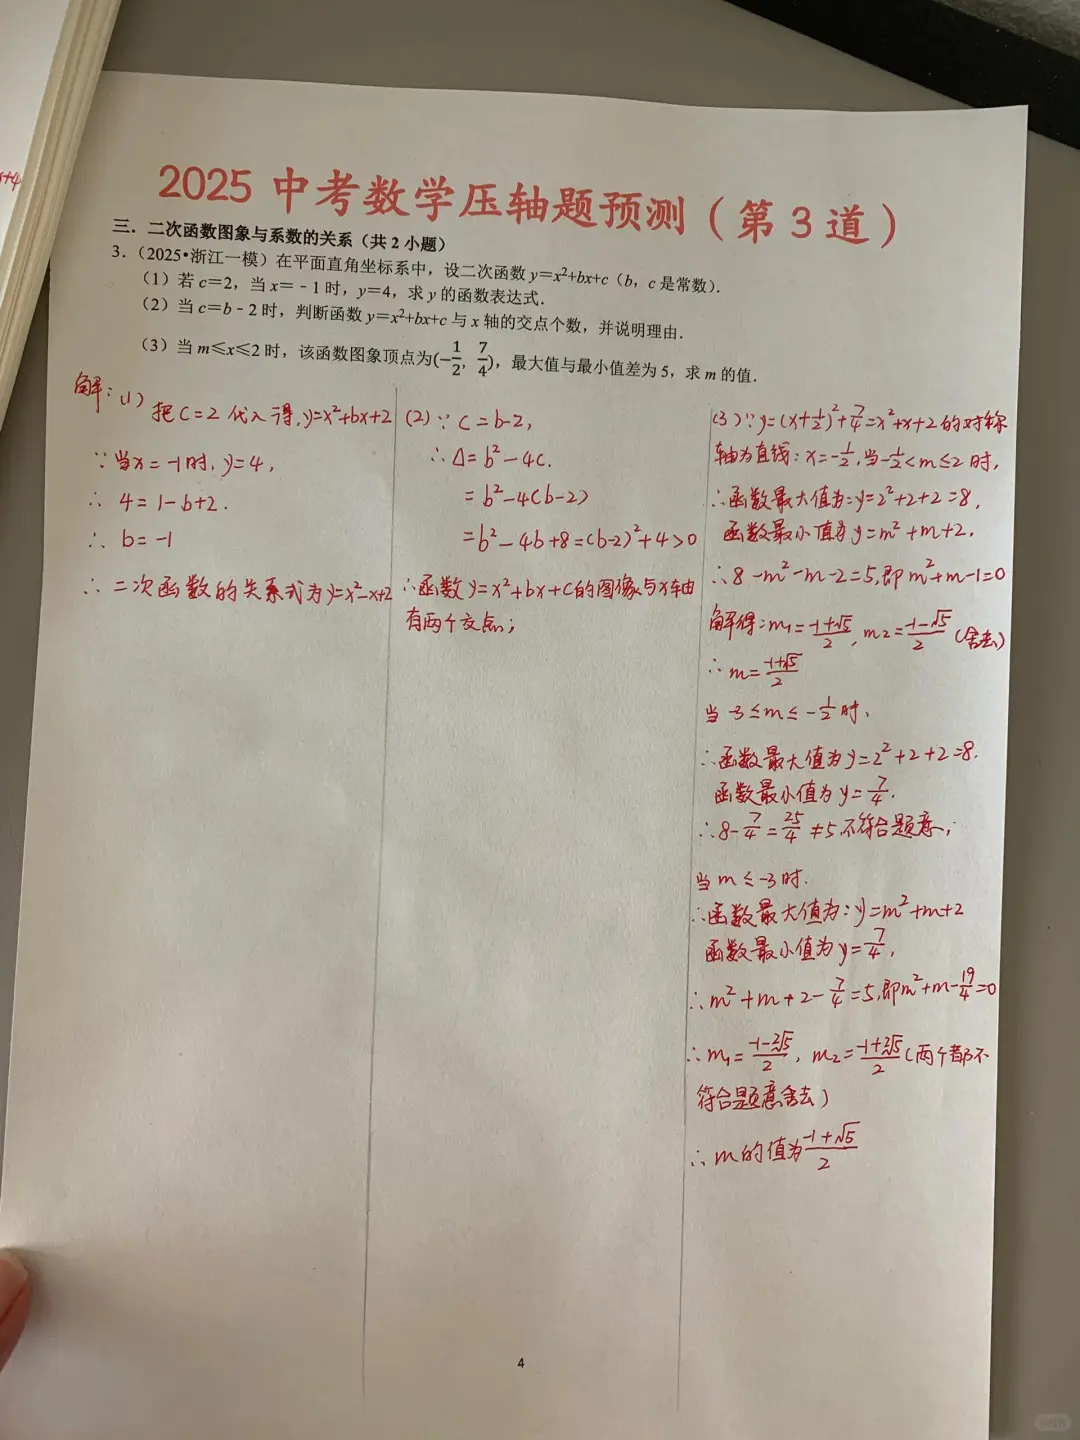 x+4
2025 中考数学压轴题预测（第 3 道）
三．二次函数图象与系数的关系（共 2 小题）
3．（2025•浙江一模）在平面直角坐标系中，设二次函数 y＝x²+bx+c（b，c 是常数）．
（1）若 c＝2，当 x＝﹣1 时，y＝4，求 y 的函数表达式．
（2）当 c＝b﹣2 时，判断函数 y＝x²+bx+c 与 x 轴的交点个数，并说明理由．
（3）当 m≤x≤2 时，该函数图象顶点为(−1/2, 7/4)，最大值与最小值差为 5，求 m 的值．
解：(1)
把C=2代入得,y=x²+bx+2
∵当x=-1时,y=4,
∴ 4=1-b+2.
∴ b=-1
∴ 二次函数的关系式为y=x²-x+2
(2)∵ C=b-2,
∴Δ=b²-4c.
=b²-4(b-2)
=b²-4b+8=(b-2)²+4>0
∴函数y=x²+bx+c的图像与x轴
有两个交点;
(3)∵y=(x+1/2)²+7/4=x²+x+2的对称
轴为直线:x=-1/2,当-1/2<m≤2时,
∴函数最大值为:y=2²+2+2=8,
函数最小值为y=m²+m+2,
∴8-m²-m-2=5,即m²+m-1=0
解得:m₁=(-1+√5)/2,m₂=(-1-√5)/2(舍去)
∴m=(-1+√5)/2
当-3≤m≤-1/2时,
∴函数最大值为y=2²+2+2=8.
函数最小值为y=7/4.
∴8-7/4=25/4≠5,不符合题意;
当m≤-3时.
∴函数最大值为:y=m²+m+2
函数最小值为y=7/4,
∴m²+m+2-7/4=5,即m²+m-19/4=0
∴m₁=(-1-2√5)/2,m₂=(-1+2√5)/2(两个都不
符合题意舍去)
∴m的值为(-1+√5)/2
4